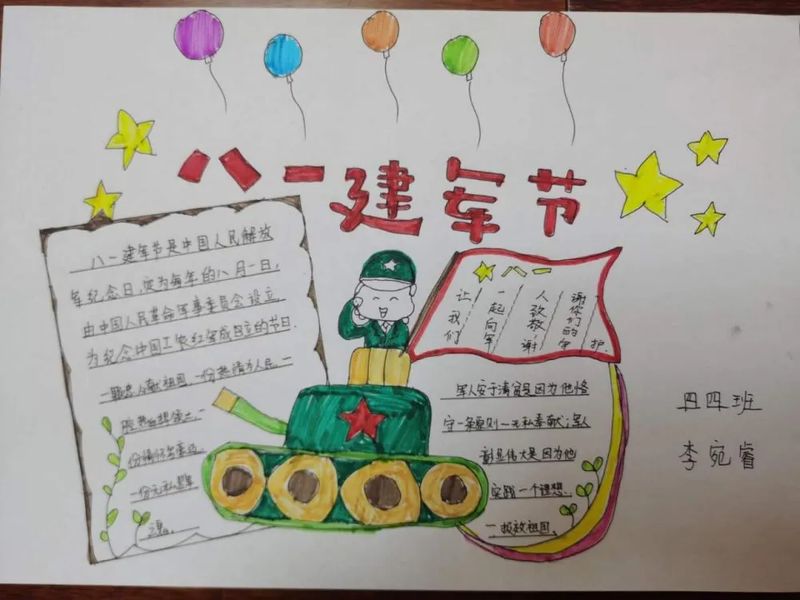 八一建军节
八一建军节是中国人民解放
军纪念日,定为每年的八月一日,
由中国人民革命军事委员会设立,
为纪念中国工农红军成立的节日.
一颗忠心献祖国,一份热情为人民,一
一份无私
八一
让我们
一起向军
人致敬,谢
谢你们的守
护.
军人安于清贫是因为他恪
守一条原则一无私奉献;军人
彰显伟大是因为他
实践一个理想.
一报效祖国.
四四班
李宛睿